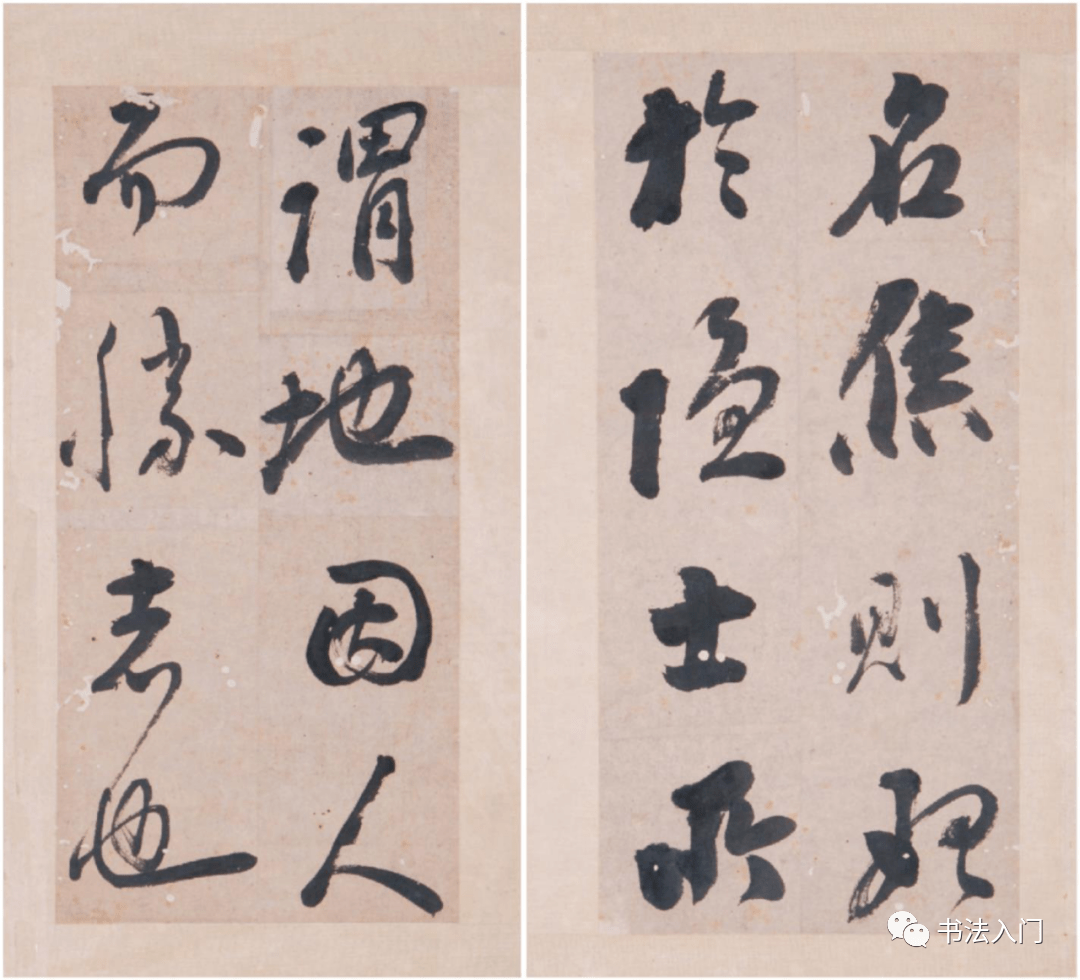 名焦則始
於隱士所
謂地因人
而勝者也
书法入门